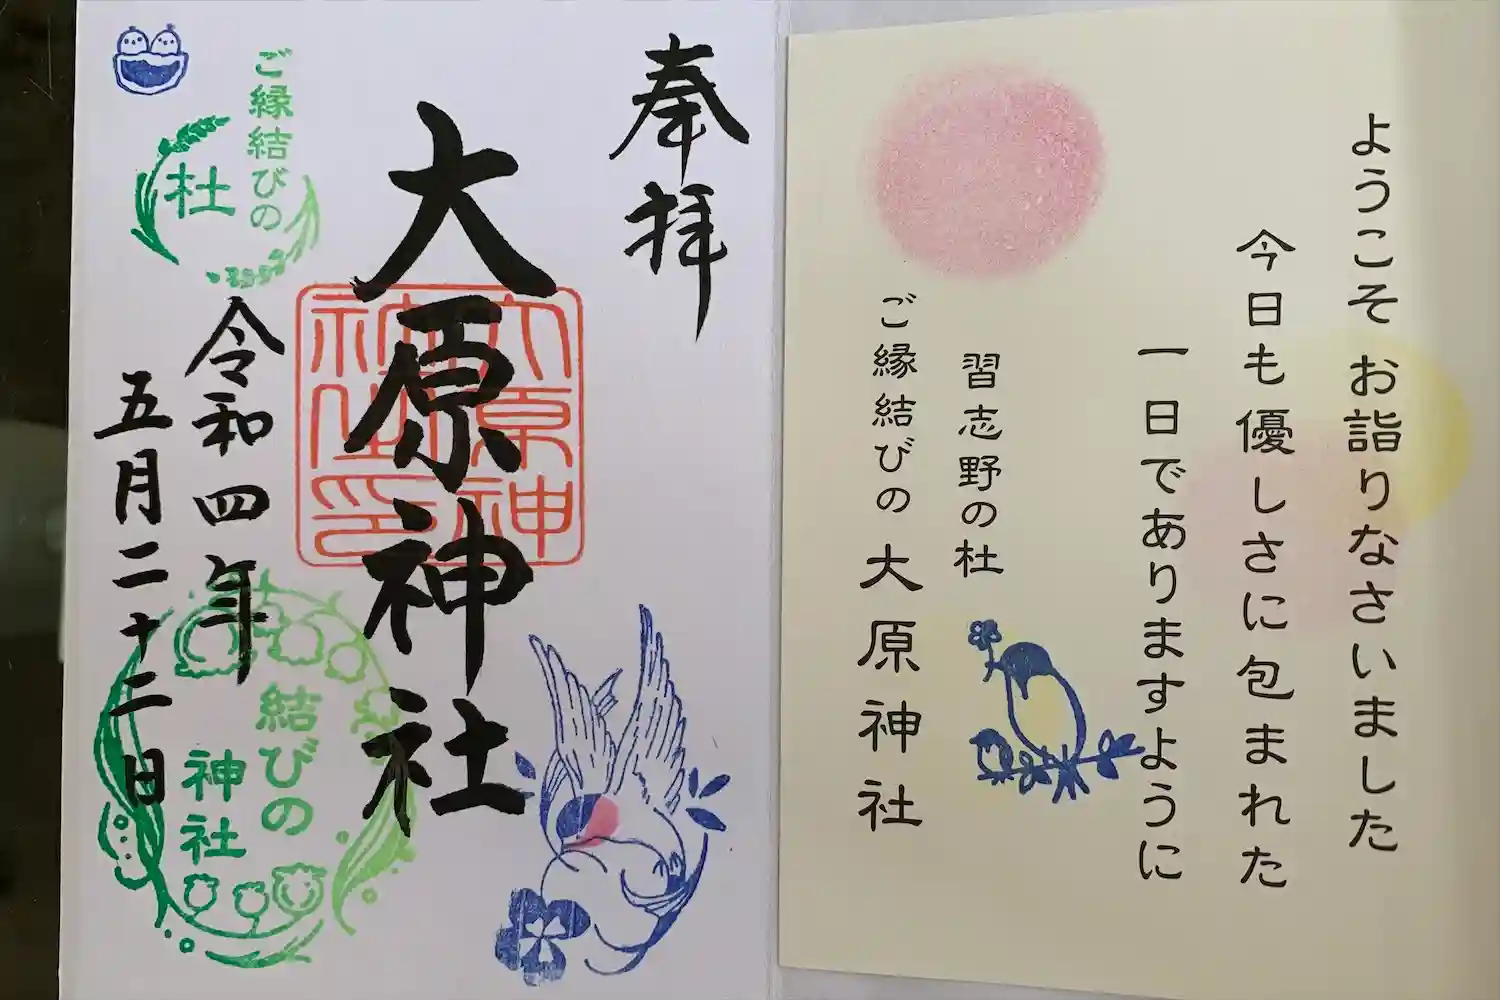 奉拝
大原神社
大原神社之印
令和四年
五月二十二日
ご縁結びの
杜
結びの
神社
ようこそ お詣りなさいました
今日も優しさに包まれた
一日でありますように
習志野の杜
ご縁結びの 大原神社